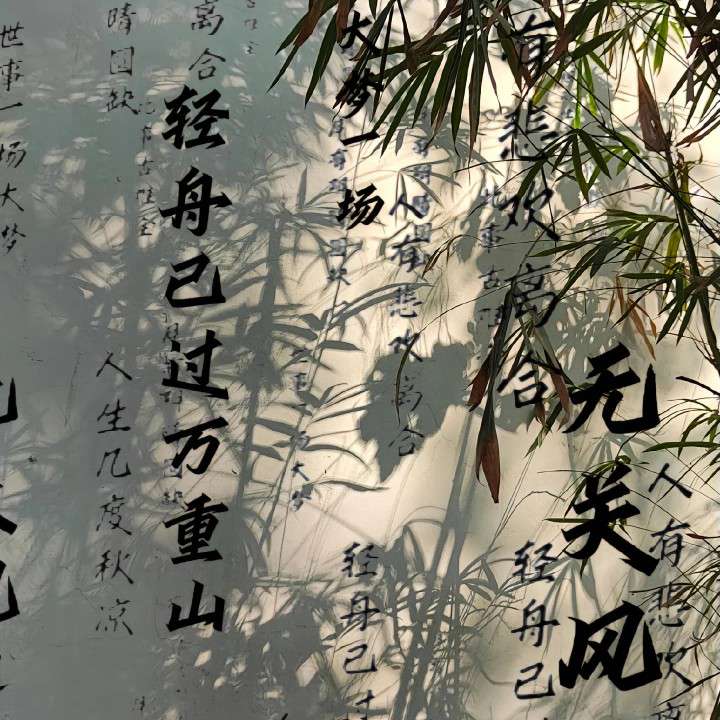 人有悲欢离
无关风
有悲欢离合
轻舟已
此事古难
人有悲欢离合
大梦一场
轻舟已过
离合
轻舟已过万重山
此事古难全
晴圆缺
人生几度秋凉
世事一场大梦